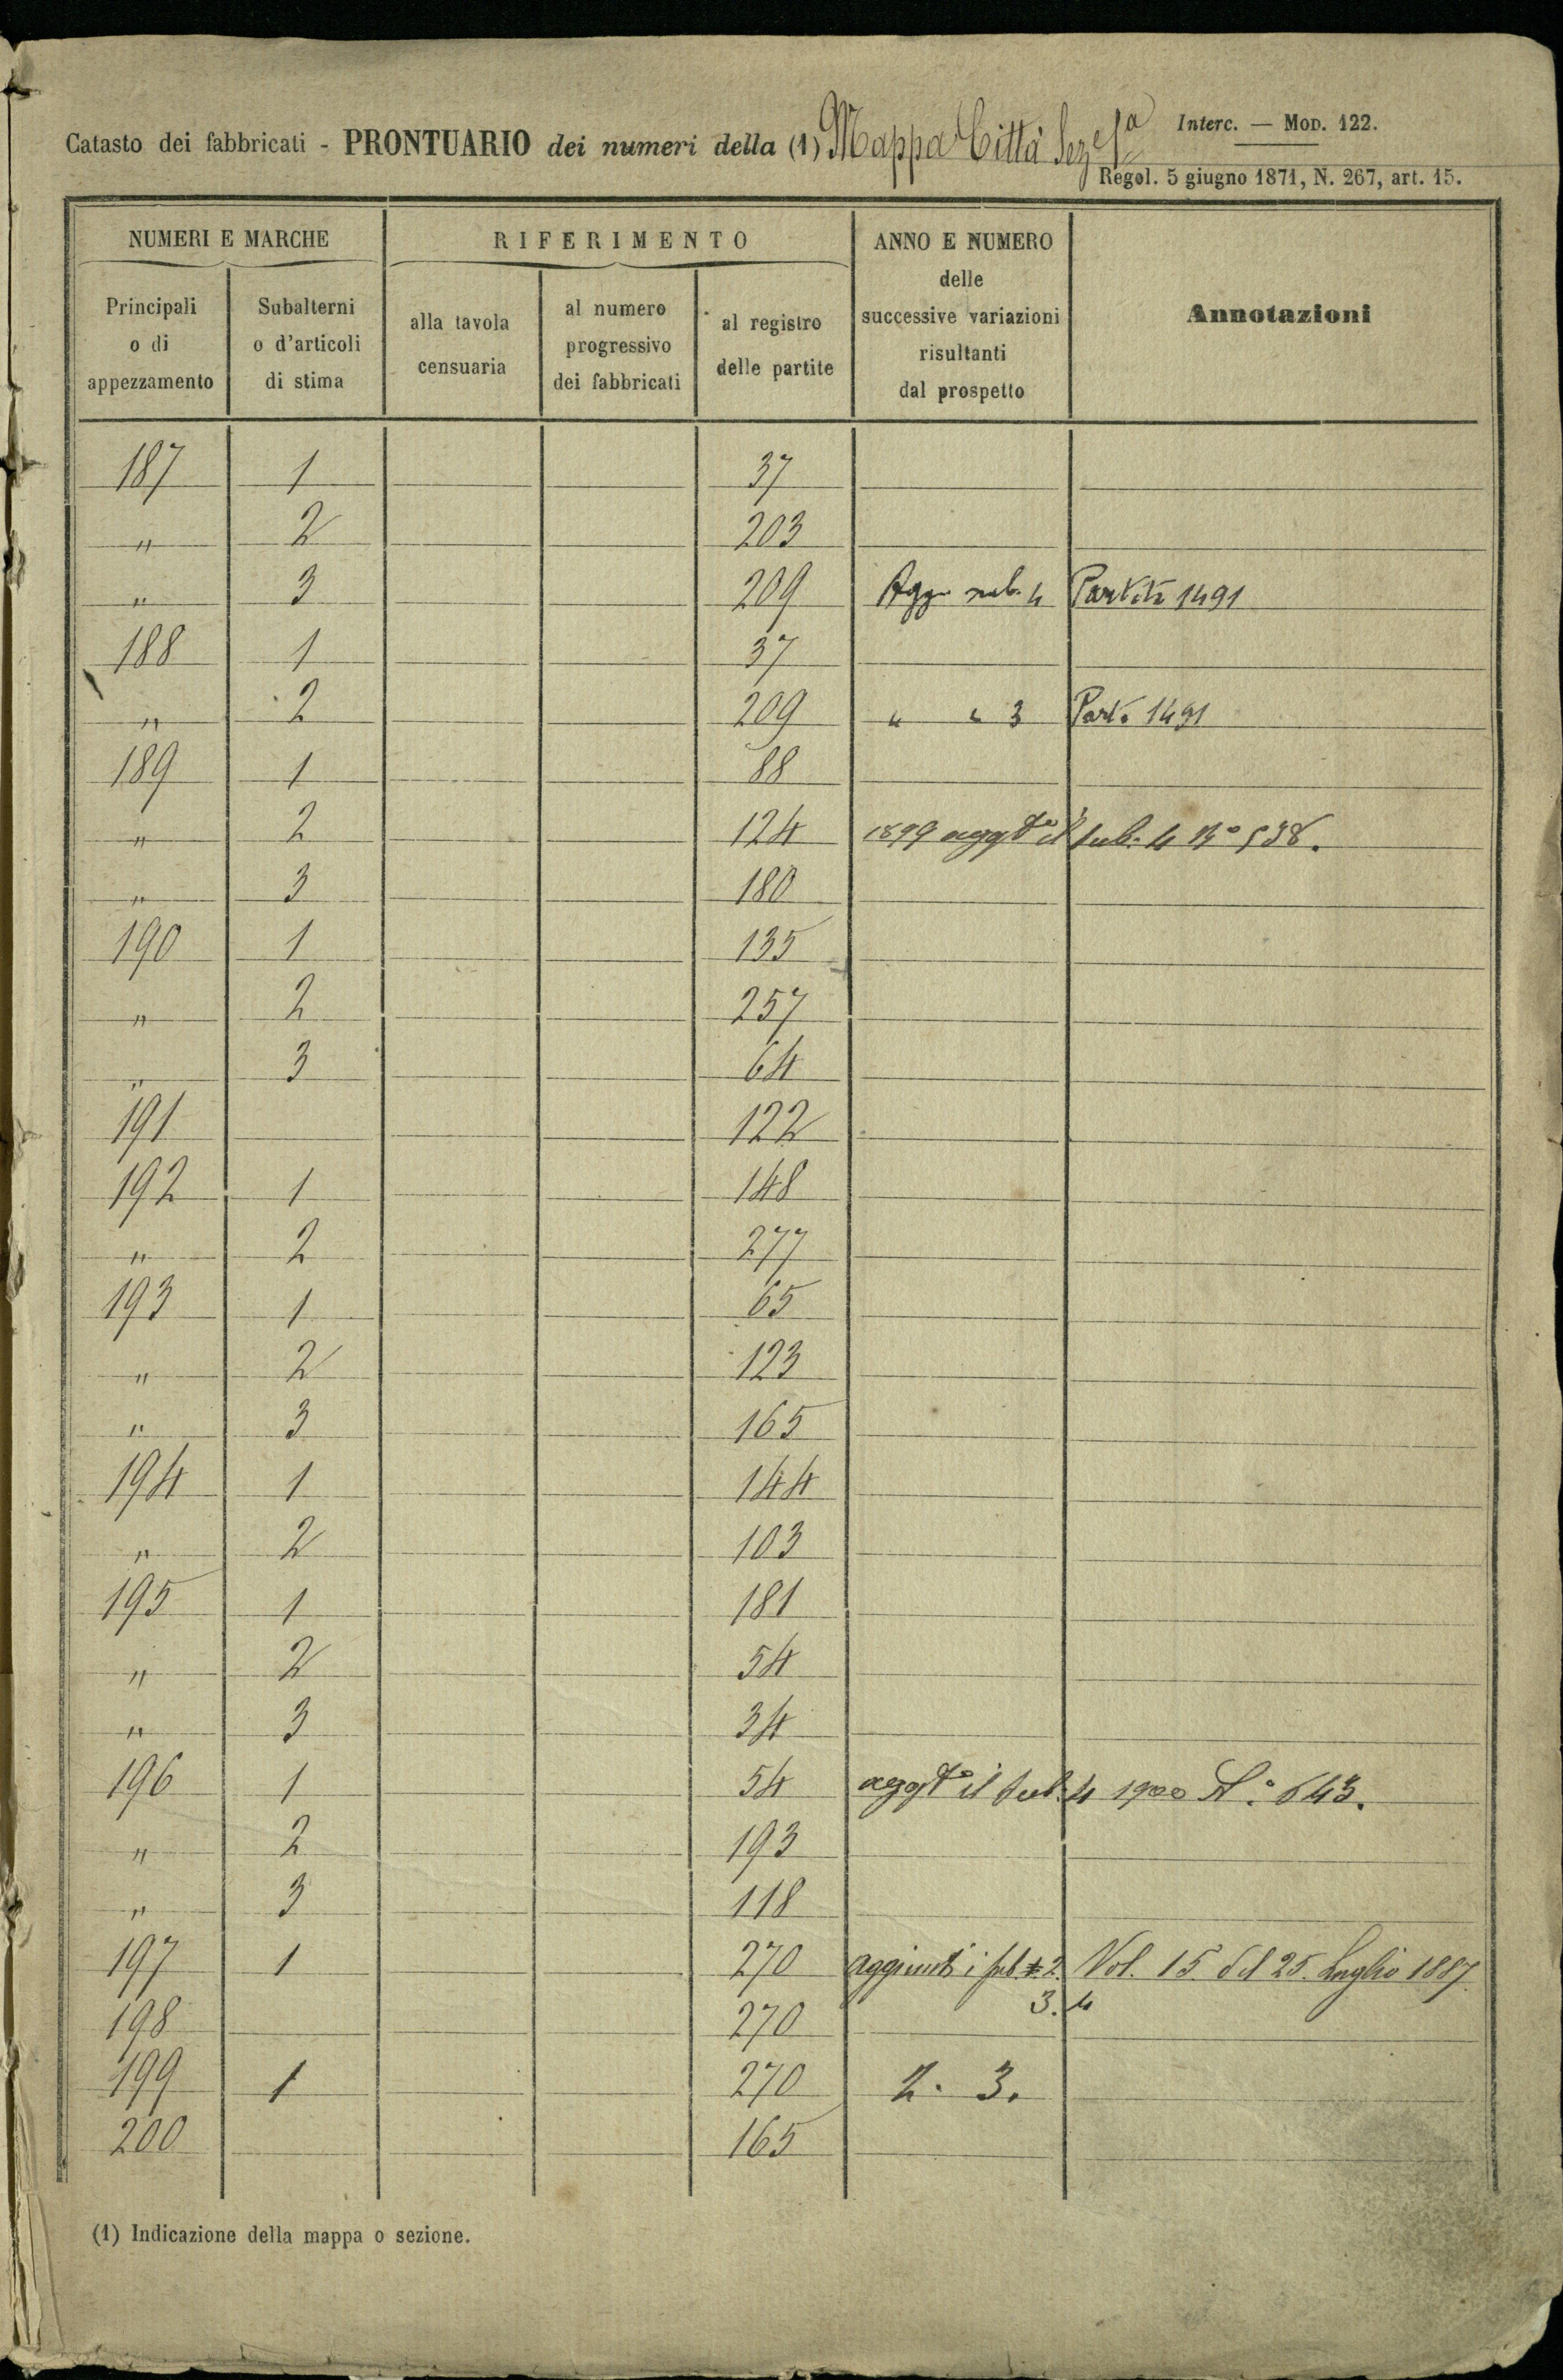 Catasto dei fabbricati - PRONTUARIO dei numeri della (1) Mappa Città Sez.e 1a
Interc. — MOD. 122.
Regol. 5 giugno 1871, N. 267, art. 15.
NUMERI E MARCHE RIFERIMENTO ANNO E NUMERO delle successive variazioni risultanti dal prospetto Annotazioni
Principali o di appezzamento Subalterni o d'articoli di stima alla tavola censuaria al numero progressivo dei fabbricati al registro delle partite
187 1 37
" 2 203
" 3 209 Agg. sub. 4 Partita 1491
188 1 37
" 2 209 " " 3 Part. 1491
189 1 88
" 2 124 1899 aggto il sub. 4 No 538.
" 3 180
190 1 135
" 2 257
" 3 64
191 122
192 1 148
" 2 277
193 1 65
" 2 123
" 3 165
194 1 144
" 2 103
195 1 181
" 2 54
" 3 34
196 1 54 aggto il sub. 4 1900 N.o 643.
" 2 193
" 3 118
197 1 270 aggiunti i sub 2. Vol. 15 del 25. Luglio 1887.
3. 4
198 270
199 1 270 2. 3.
200 165
(1) Indicazione della mappa o sezione.